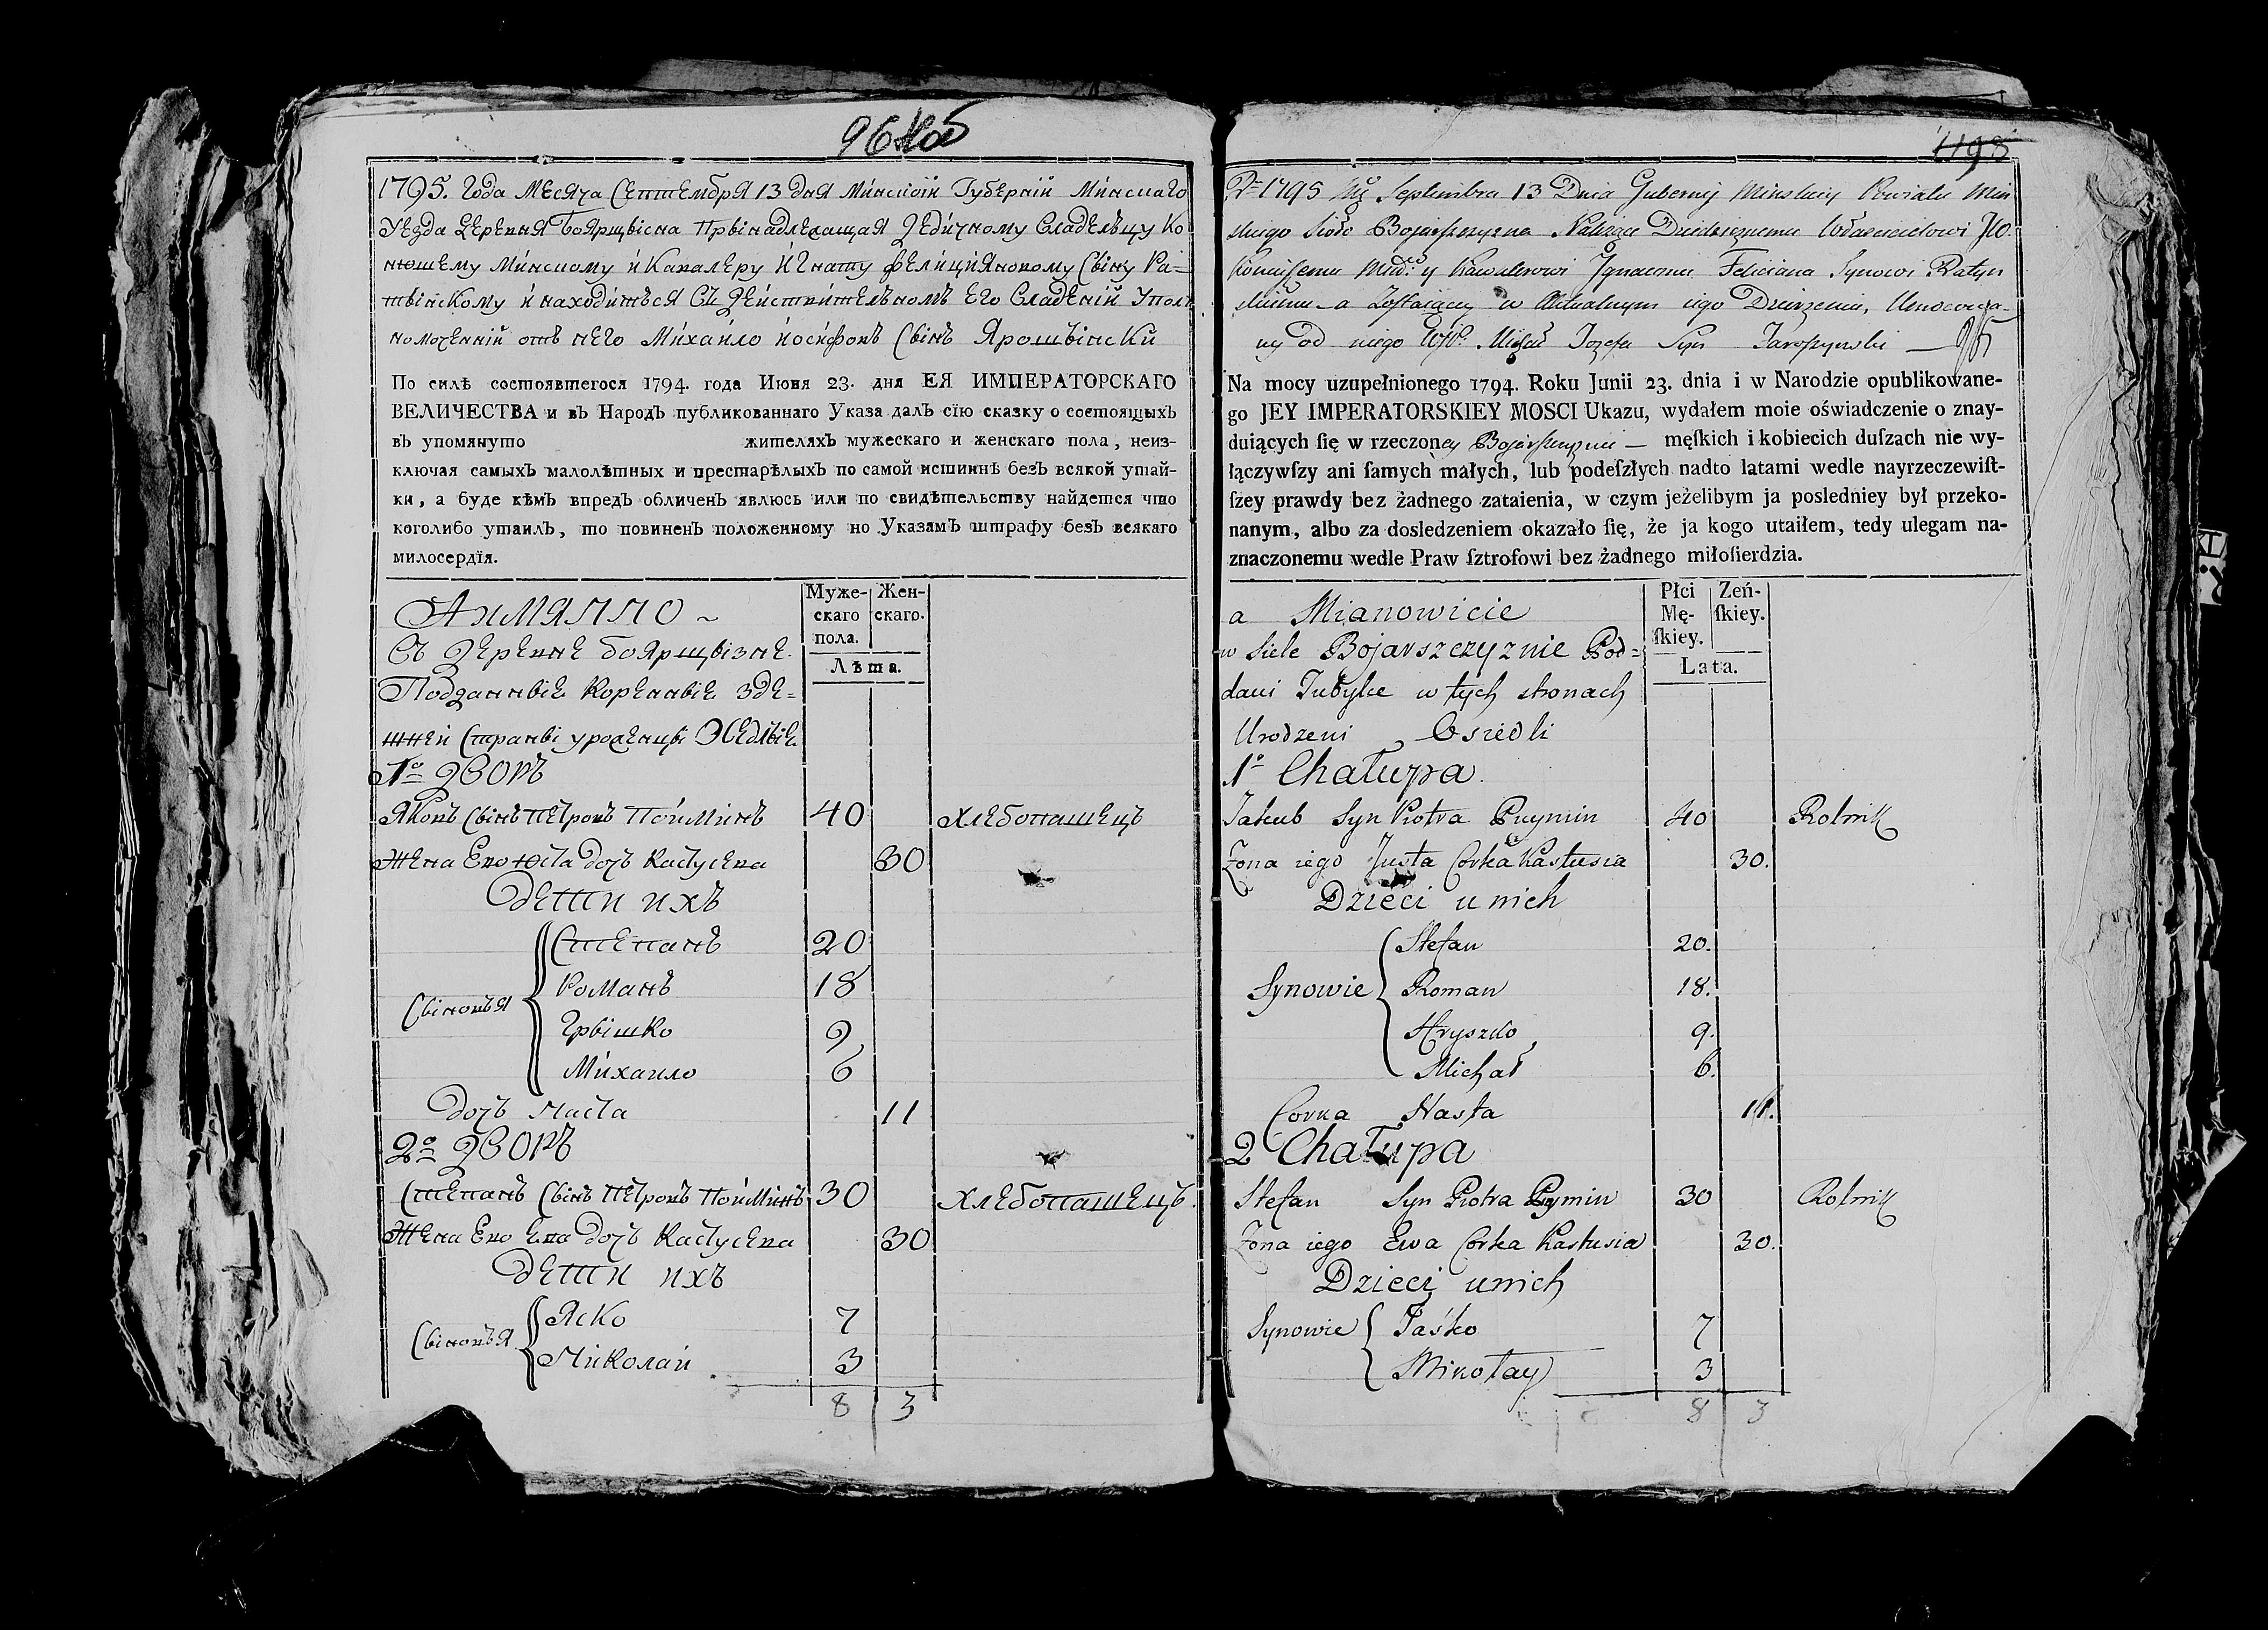 96
1795. года месяца Септембря 13 дня Минской Губерний Минскаго
Уезда деревня Боярщвізна Првінадлежащая дедичному Владелцу Ко
нюшему Минскому и Кавалеру Игнату Фелициановому Свіну Ра=
твінскому и находитъся Съ действителъномъ его Владений Упол
номоченній отъ него Михайло Йосифовъ Свінъ Ярошвінски
По силѣ состоявшегося 1794. года Июня 23. дня ЕЯ ИМПЕРАТОРСКАГО
ВЕЛИЧЕСТВА и въ Народъ публикованнаго Указа далъ сїю сказку о состоящыхъ
въ упомянуто жителяхъ мужескаго и женскаго пола, неиз-
ключая самыхъ малолѣтных и престарѣлыхъ по самой истиннѣ безъ всякой утай-
ки, а буде кѣмъ впредъ обличенъ явлюсь или по свидѣтельству найдется что
коголибо утаилъ, то повиненъ положенному но Указамъ штрафу безъ всякаго
милосердїя.
Муже-
скаго
пола.
Жен-
скаго.
Лѣта.
Аимянно
Съ деревне боярщвізне
Подданнвіе Коренвіе зде=
шней Странві уроженцві Оседлвіе
1º дворъ
Яковъ Свінъ Петровъ Поймінъ 40 Хлебопашецъ
Жена Ево Юста дочъ Кастусева 30
дети ихъ
Свіновъя
Степанъ 20
Романъ 18
Грвішко 9
Михайло 6
дочъ Наста 11
2º дворъ
Степанъ Свінъ Петровъ Поймінъ 30 Хлебопашецъ
Жена Ево Ева дочъ Кастусева 30
дети ихъ
Свіновъя
Яско 7
Миколай 3
8 3
1198
Rº 1795 Septembra 13 Dnia Gubernij Minskiey Powiatu Min
skiego Sioło Bojarszczyzna Należące Dziedzicznemu Właścicielowi JW.
Koniuszemu y Kawalerowi Ignacemu Feliciana Synowi Ratyn
skiemu a Zostaiący w Aktualnym iego Dzierzeniu, Umocowa-
ny od niego Michał Jozefa Syn Jaroszynski
Na mocy uzupełnionego 1794. Roku Junii 23. dnia i w Narodzie opublikowane-
go JEY IMPERATORSKIEY MOSCI Ukazu, wydałem moie oświadczenie o znay-
duiących ſię w rzeczoney Bojarszczyznie męſkich i kobiecich duſzach nie wy-
łączywſzy ani ſamych małych, lub podeſzłych nadto latami wedle nayrzeczewiſt-
ſzey prawdy bez żadnego zataienia, w czym jeżelibym ja posledniey był przeko-
nanym, albo za dosledzeniem okazało ſię, że ja kogo utaiłem, tedy ulegam na-
znaczonemu wedle Praw ſztrofowi bez żadnego miłoſierdzia.
Płci
Mę-
ſkiey.
Zeń-
ſkiey.
Lata.
a Mianowicie
w Siele Bojarszczyznie Pod=
dani Tubylce w tych stronach
Urodzeni Osiedli
1º Chałupa.
Jakub Syn Piotra Puymin 40 Rolnik
Zona iego Justa Corka Kastusia 30.
Dzieci u nich
Synowie
Stefan 20.
Roman 18.
Hryszko 9.
Michał 6.
Corka Nasta 11.
2 Chałupa
Stefan Syn Piotra Puymin 30 Rolnik
Zona iego Ewa Corka Kastusia 30.
Dzieci u nich
Synowie
Jaśko 7
Mikołay 3
8 3